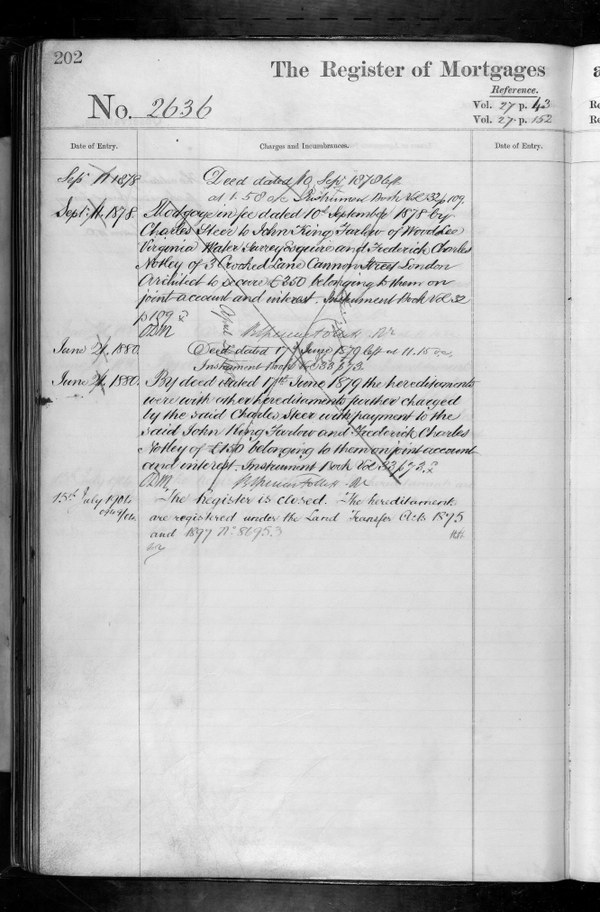 202
The Register of Mortgages
Reference.
No. 2636
Vol. 27 p. 43
Vol. 27 p. 152
Date of Entry.
Charges and Incumbrances.
Date of Entry.
Sepr 11 1878
Deed dated 10 Sepr 1878 left
at 1.58 o/c Instrument Book Vol 32 p 199.
Sept. 11. 1878.
Mortgage in fee dated 10th September 1878 by
Charles Steer to John King Farlow of Woodlee
Virginia Water Surrey Esquire and Frederick Charles
Notley of 3 Crooked Lane Cannon Street London
Architect to secure £350 belonging to them on
joint account and interest. Instrument Book Vol 32
p 199
April
June 21. 1880.
Deed dated 17th June 1879 left at 11.15
Instrument Book Vol 33 p 73.
June 21. 1880.
By deed dated 17th June 1879 the hereditaments
were with other hereditaments further charged
by the said Charles Steer with payment to the
said John King Farlow and Frederick Charles
Notley of £150 belonging to them on joint account
and interest. Instrument Book Vol 33 p 73.
15th July 1904
The Register is closed. The hereditaments
are registered under the Land Transfer Acts 1875
and 1897 No 86953